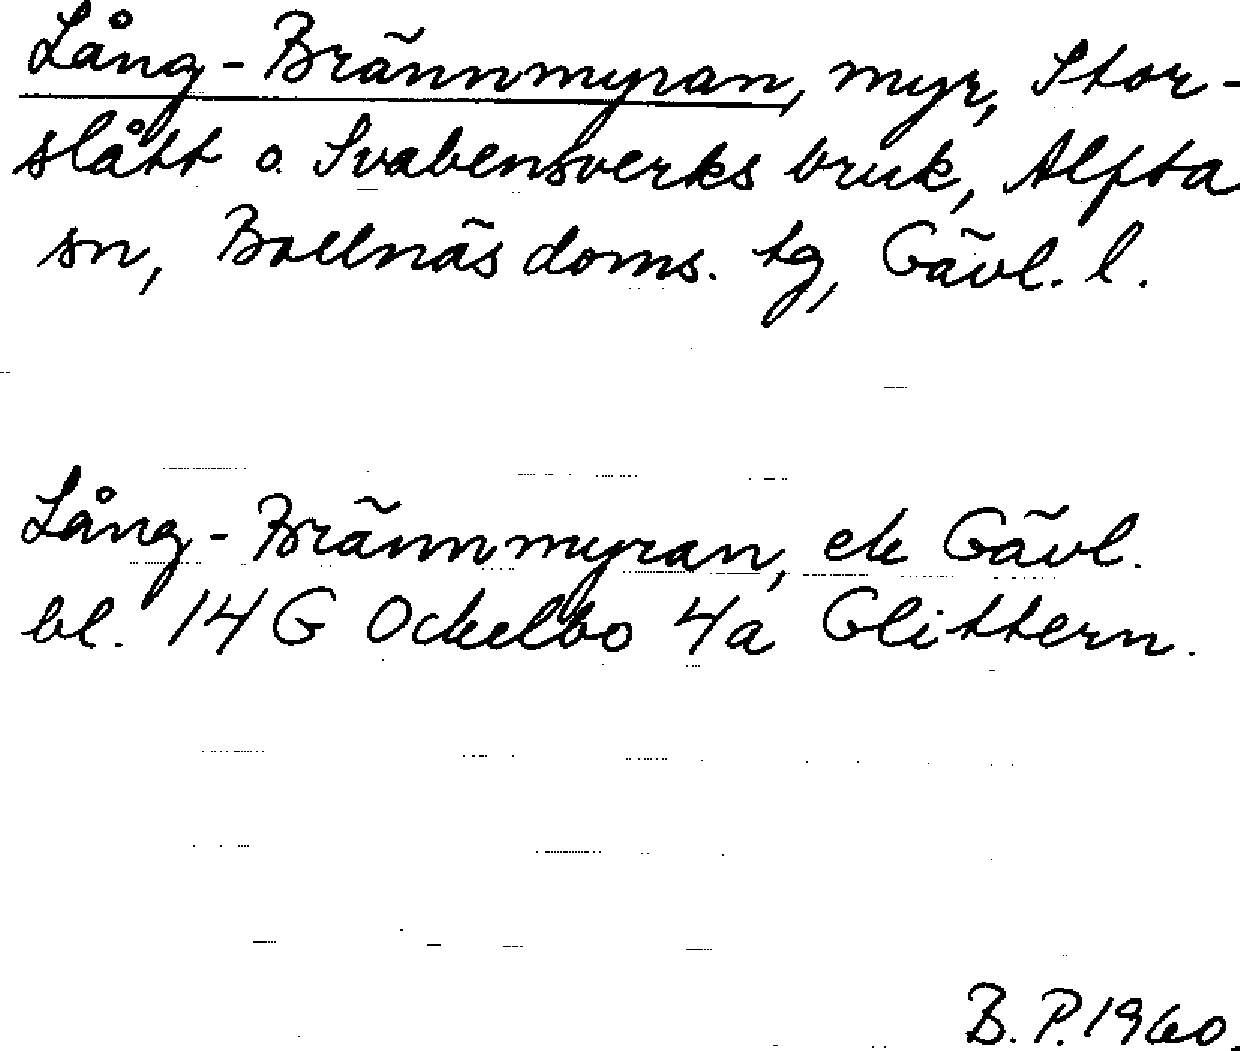 Lång-Brännmyran, myr, Stor-
slått o. Svabensverks bruk, Alfta
sn, Bollnäs doms. tg, Gävl. l.
Lång-Brännmyran, ek Gävl.
bl. 14G Ockelbo 4a Glittern.
B. P. 1960.